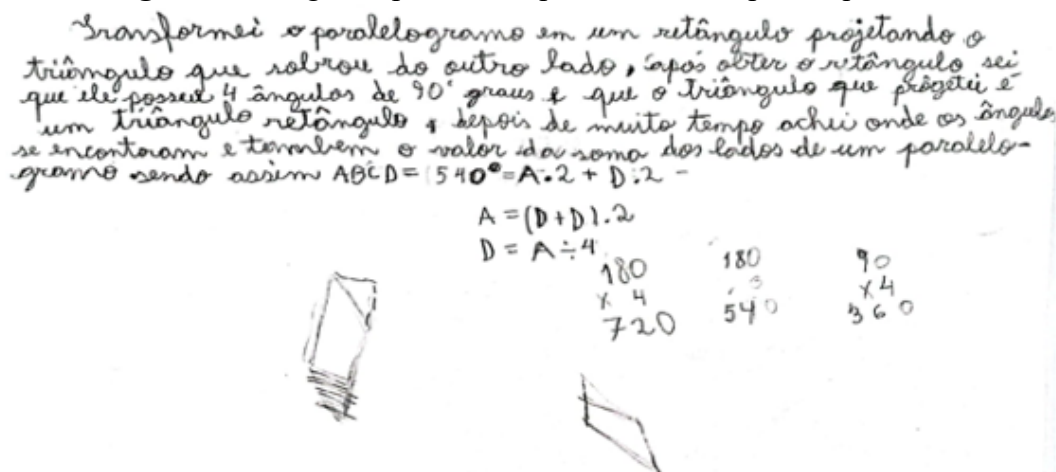 Transformei o paralelogramo em um retângulo projetando o
triângulo que sobrou do outro lado, após obter o retângulo sei
que ele possui 4 ângulos de 90° graus e que o triângulo que progetei é
um triângulo retângulo, depois de muito tempo achei onde os ângulos
se encontoram e tambem o valor da soma dos lados de um paralelo-
gramo sendo assim ABCD = 540° = A.2 + D.2 -
A = (D + D).2
D = A ÷ 4
180 180 90
x 4 3 x 4
720 540 360